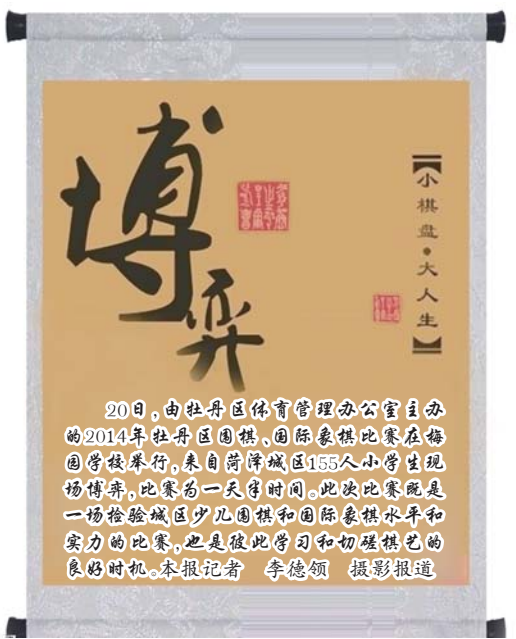 博弈
【小棋盘•大人生】
20日,由牡丹区体育管理办公室主办
的2014年牡丹区围棋、国际象棋比赛在梅
园学校举行,来自菏泽城区155人小学生现
场博弈,比赛为一天半时间。此次比赛既是
一场检验城区少儿围棋和国际象棋水平和
实力的比赛,也是彼此学习和切磋棋艺的
良好时机。本报记者 李德领 摄影报道